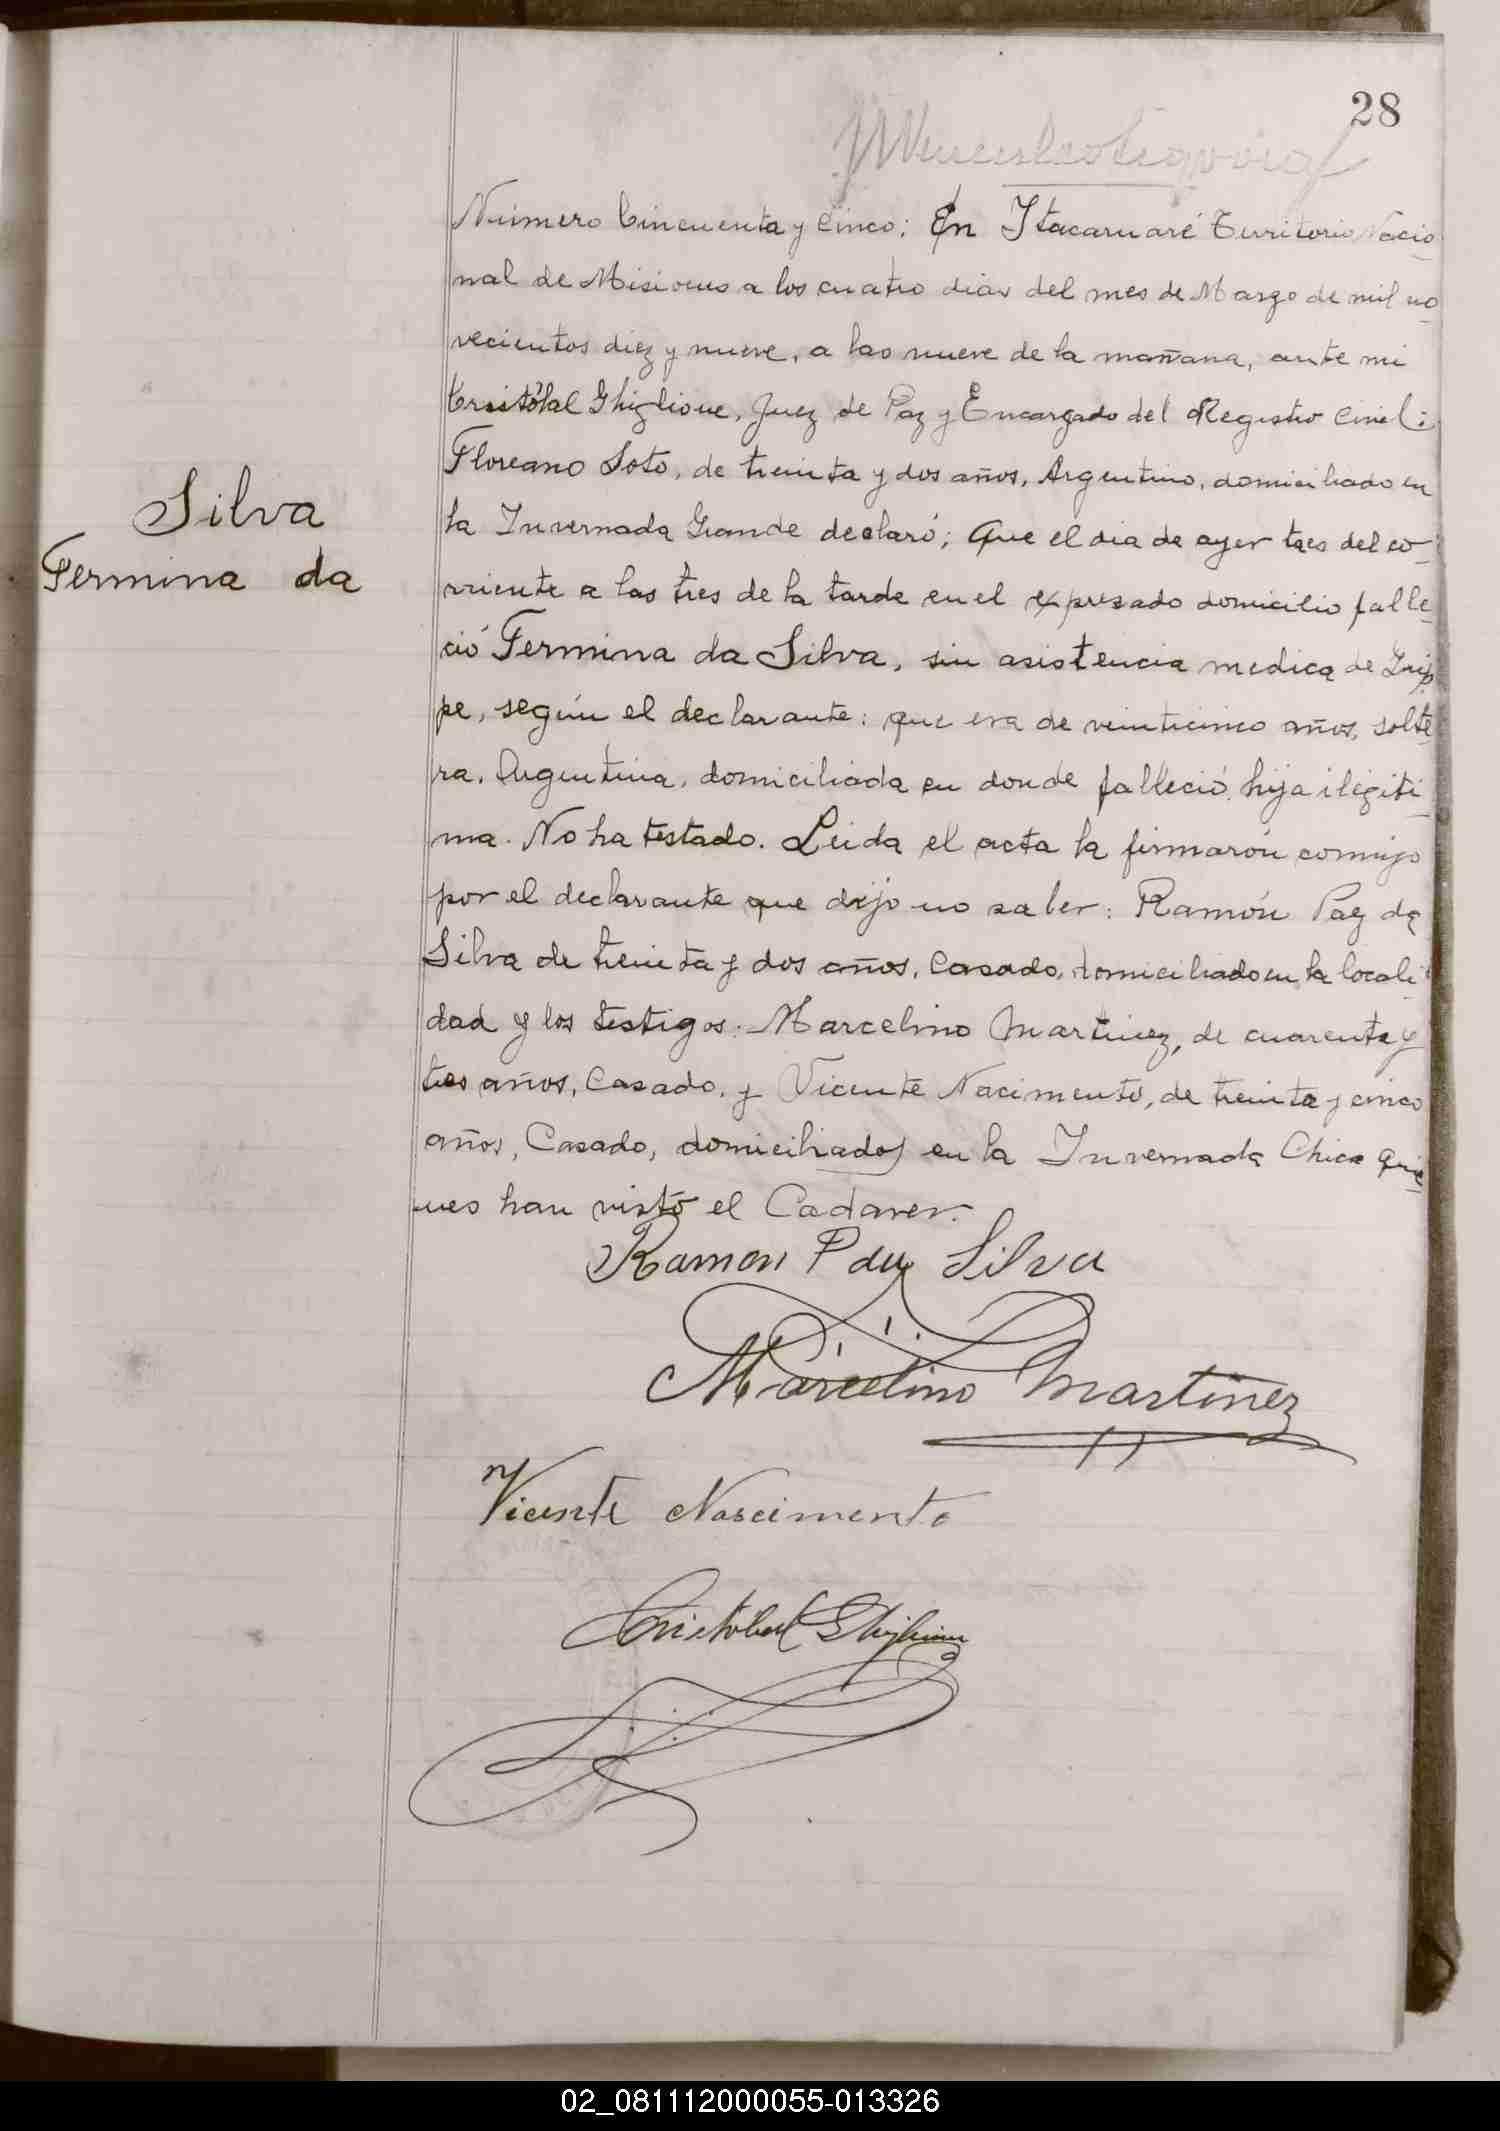 28
Número Cincuenta y Cinco: En Itacaruaré Territorio Nacio-
nal de Misiones a los cuatro dias del mes de Marzo de mil no-
vecientos diez y nueve, a las nueve de la mañana, ante mi
Cristóbal Ghiglione, Juez de Paz y Encargado del Registro Civil:
Floreano Soto, de treinta y dos años, Argentino, domiciliado en
la Invernada Grande declaró; Que el dia de ayer tres del co-
rriente a las tres de la tarde en el expresado domicilio falle-
ció Fermina da Silva, sin asistencia medica de Grip-
pe, según el declarante: que era de veinticinco años, solte-
ra, Argentina, domiciliada en donde falleció, hija ilegiti-
ma. No ha testado. Leida el acta la firmarón conmigo
por el declarante que dijo no saber: Ramón Paz da
Silva de treinta y dos años, Casado, domiciliado en la locali-
dad y los testigos: Marcelino Martinez, de cuarenta y
tres años, Casado, y Vicente Nacimento, de treinta y cinco
años, Casado, domiciliados en la Invernada Chica quie-
nes han visto el Cadaver.
Silva
Fermina da
Ramon P da Silva
Marcelino Martinez
Vicente Nascimento
Cristóbal Ghiglione
02_081112000055-013326